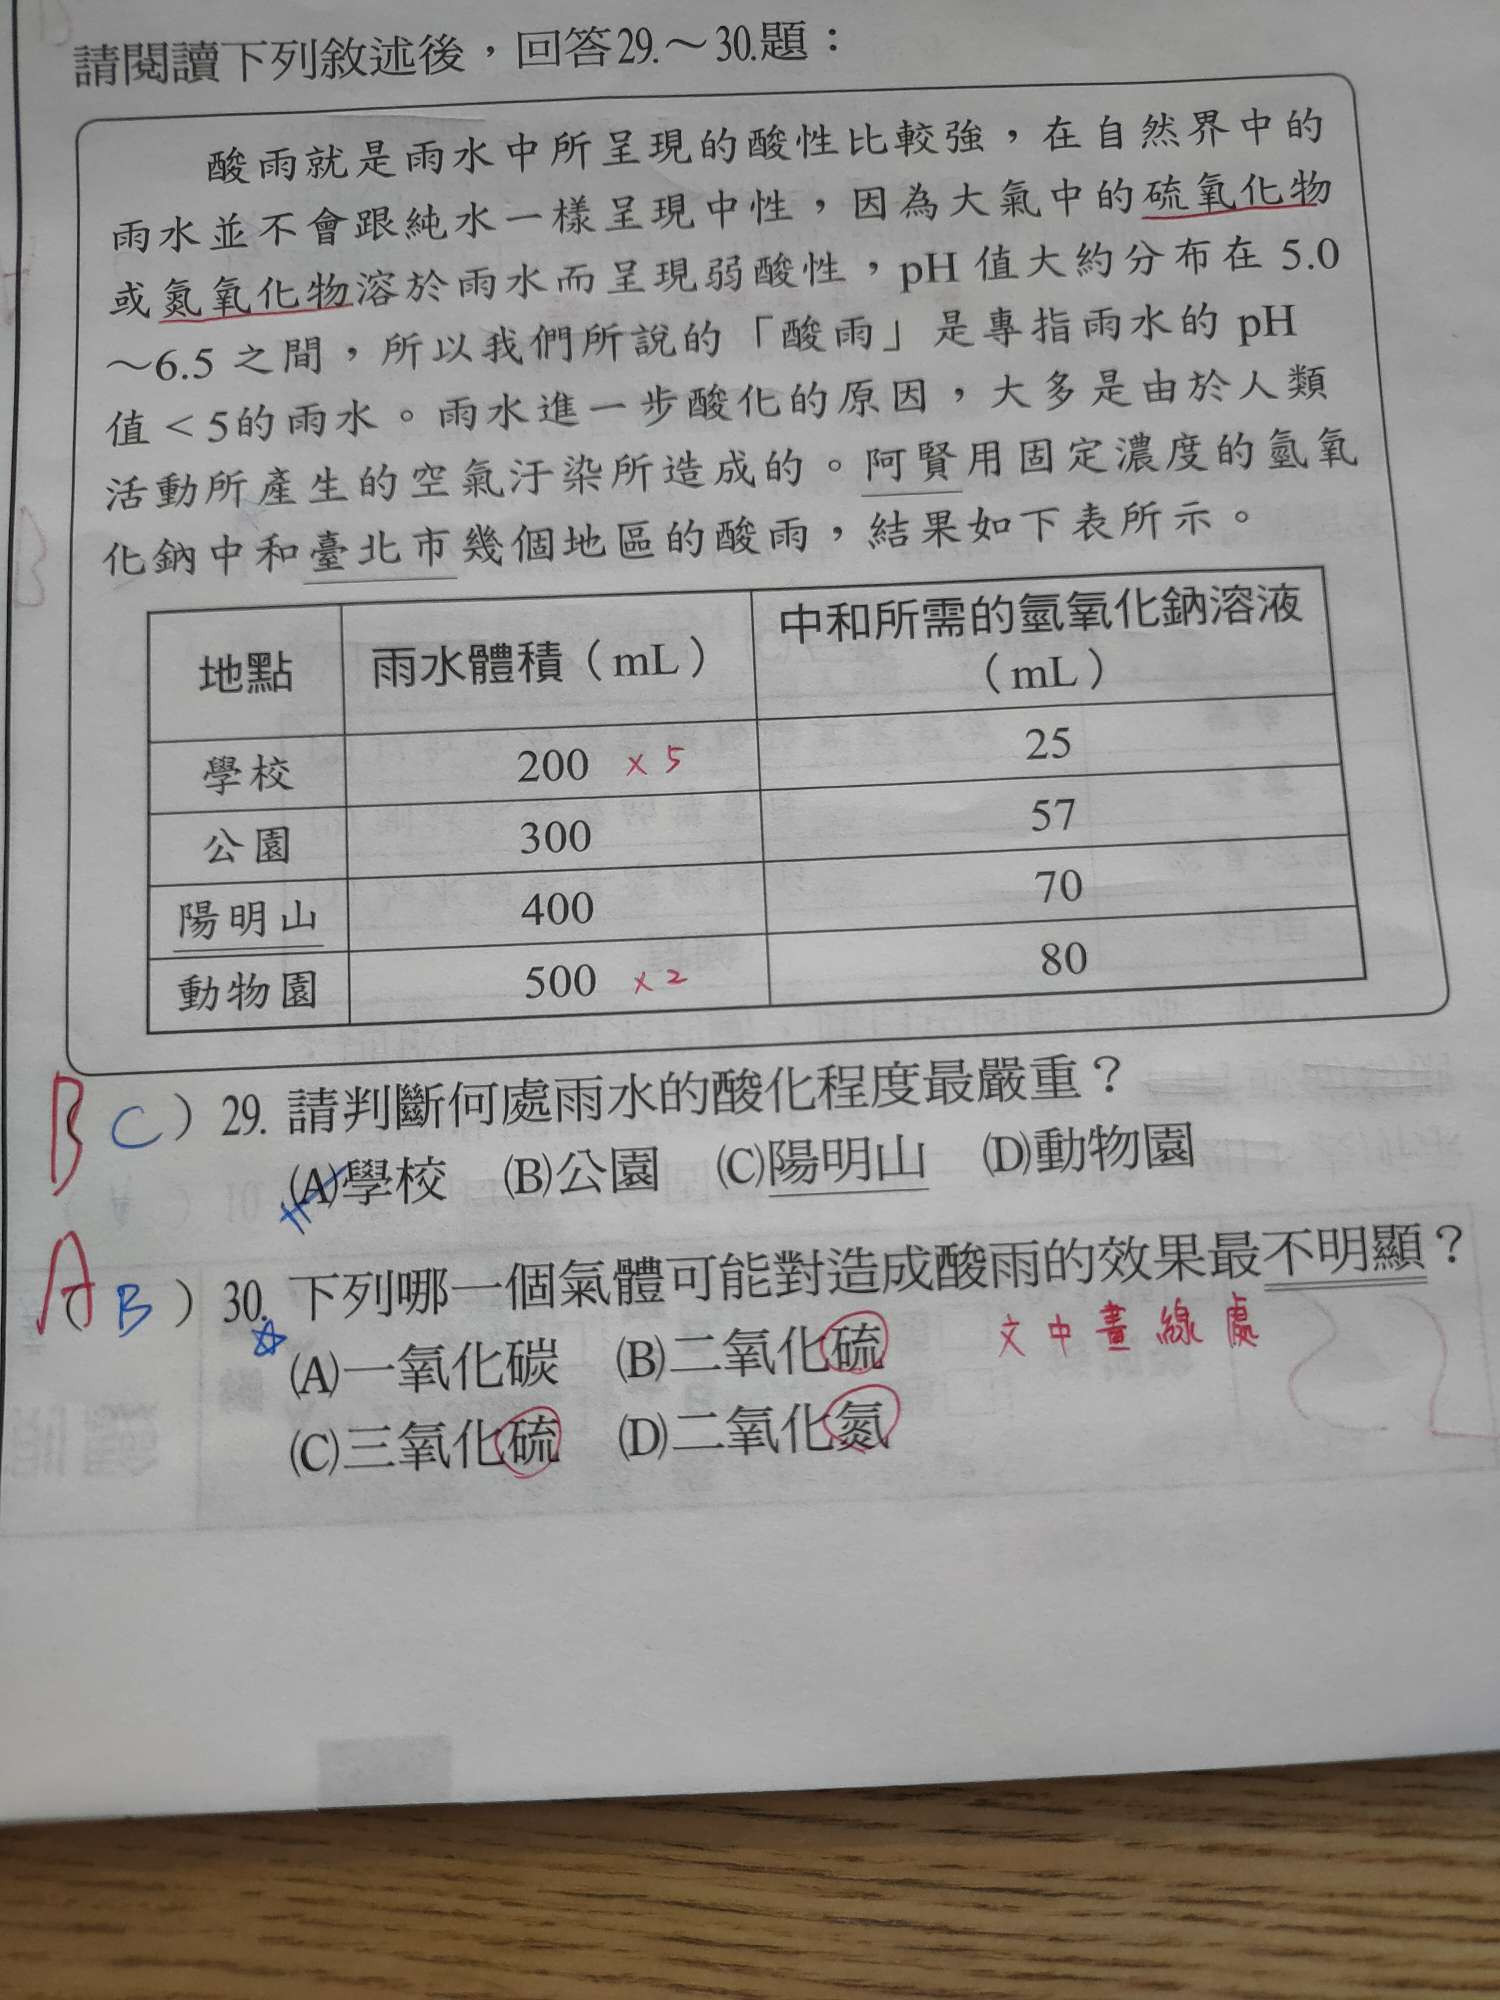 請閱讀下列敘述後，回答29.～30.題：
酸雨就是雨水中所呈現的酸性比較強，在自然界中的
雨水並不會跟純水一樣呈現中性，因為大氣中的硫氧化物
或氮氧化物溶於雨水而呈現弱酸性，pH 值大約分布在 5.0
～6.5 之間，所以我們所說的「酸雨」是專指雨水的 pH
值＜5的雨水。雨水進一步酸化的原因，大多是由於人類
活動所產生的空氣汙染所造成的。阿賢用固定濃度的氫氧
化鈉中和臺北市幾個地區的酸雨，結果如下表所示。
地點 雨水體積（mL） 中和所需的氫氧化鈉溶液
（mL）
學校 200 ×5 25
公園 300 57
陽明山 400 70
動物園 500 ×2 80
B C）29. 請判斷何處雨水的酸化程度最嚴重？
(A)學校 (B)公園 (C)陽明山 (D)動物園
A B）30. 下列哪一個氣體可能對造成酸雨的效果最不明顯？
(A)一氧化碳 (B)二氧化硫 文中畫線處
(C)三氧化硫 (D)二氧化氮